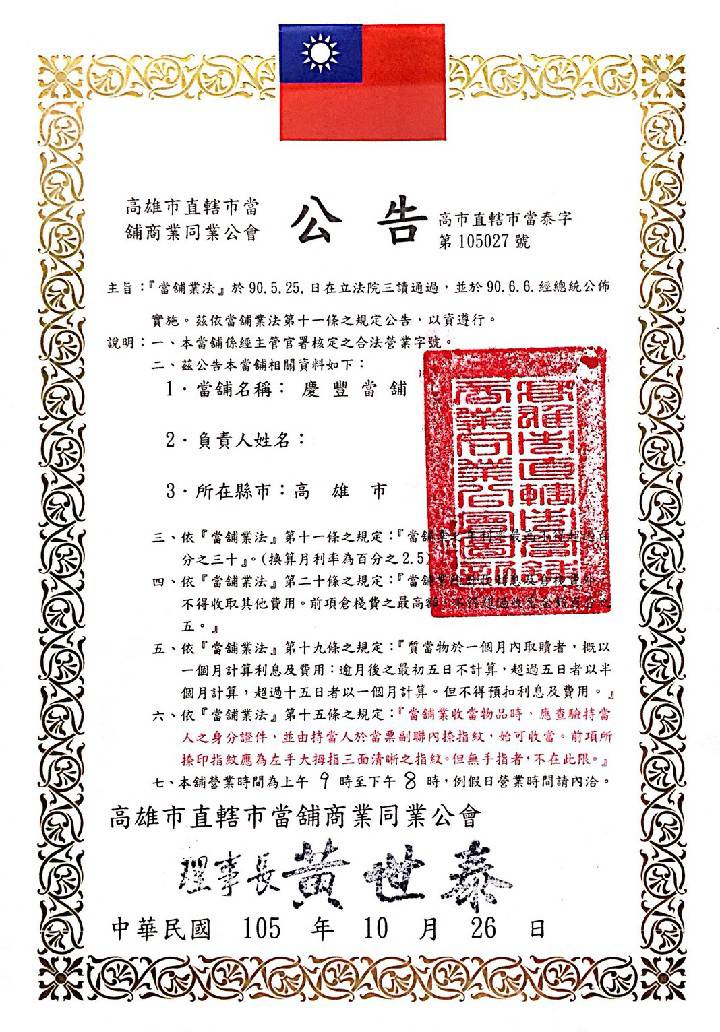 高雄市直轄市當
舖商業同業公會
公告
高市直轄市當泰字
第105027號
主旨：『當舖業法』於90.5.25.日在立法院三讀通過，並於90.6.6.經總統公佈
實施。茲依當舖業法第十一條之規定公告，以資遵行。
說明：一、本當舖係經主管官署核定之合法營業字號。
二、茲公告本當舖相關資料如下：
1．當舖名稱：慶豐當舖
2．負責人姓名：
3．所在縣市：高雄市
三、依『當舖業法』第十一條之規定：『當舖業
分之三十』。(換算月利率為百分之2.5)
四、依『當舖業法』第二十條之規定：『當舖業
不得收取其他費用。前項倉棧費之最高額，
五。』
五、依『當舖業法』第十九條之規定：『質當物於一個月內取贖者，概以
一個月計算利息及費用：逾月後之最初五日不計算，超過五日者以半
個月計算，超過十五日者以一個月計算。但不得預扣利息及費用。』
六、依『當舖業法』第十五條之規定：『當舖業收當物品時，應查驗持當
人之身分證件，並由持當人於當票副聯內捺指紋，始可收當。前項所
捺印指紋應為左手大拇指三面清晰之指紋。但無手指者，不在此限。』
七、本舖營業時間為上午9時至下午8時，例假日營業時間請內洽。
高雄市直轄市當舖商業同業公會
理事長黃世泰
中華民國 105 年 10 月 26 日